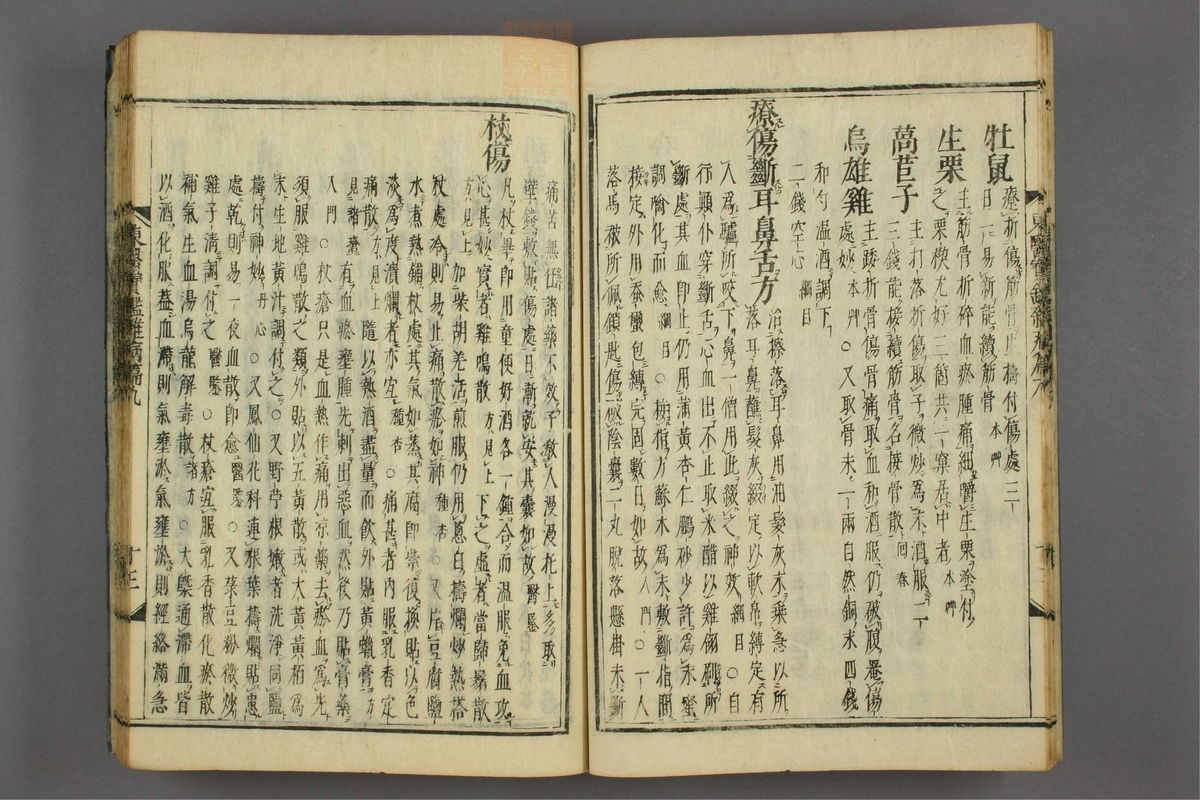 牡鼠 療折傷筋骨止擣付傷處三
日一易新能續筋骨 本艸
生栗 主筋骨折碎血瘀腫痛細嚼生栗塗付
之栗楔尤好三箇共一窠居中者 本艸
萵苣子 主打落折傷取子微炒爲末酒服二
三錢能接續筋骨名接骨散 回春
烏雄雞 主踒折骨傷骨痛取血和酒服仍破腹罨傷
處妙 本艸 ○又取骨末一兩自然銅末四錢
和勻温酒調下
二錢空心 綱目
療傷斷耳鼻舌方 治擦落耳鼻用油髮灰末乘急以所
落耳鼻蘸髮灰綴定以軟帛縛定有
人爲驢所咬下鼻一僧用此綴之神效 綱目 ○自
行顚仆穿斷舌心血出不止取米醋以雞翎刷所
斷處其血即止仍用蒲黃杏仁鵬砂少許爲末蜜
調噙化而愈 綱目 ○接指方蘇木爲末敷斷指間
接定外用蠶蠒包縛完固數日如故 入門 ○一人
落馬被所佩鎖匙傷破陰囊二丸脫落懸掛未斷
痛苦無任諸藥不效予教人漫漫托上多取
壁錢敷貼傷處日漸就安其囊如故 醫鑒
杖傷 凡杖畢即用童便好酒各一鍾合而溫服免血攻
心甚妙實者雞鳴散 方見上 下之虛者當歸鬚散
方見上 加柴胡羌活煎服仍用葱白擣爛炒熱搭
杖處冷則易止痛散瘀如神 種杏 ○又片豆腐鹽
水煮熟鋪杖處其氣如蒸其腐即紫復換貼以色
淡爲度潰爛者亦宜 種杏 ○痛甚者內服乳香定
痛散 方見上 隨以熱酒盡量而飲外貼黃蠟膏 方
見諸瘡 有血瘀壅腫先刺出惡血然後乃貼膏藥
入門 ○杖瘡只是血熱作痛用凉藥去瘀血爲先
須服雞鳴散之類外貼以五黃散或大黃黃栢爲
末生地黃汁調付之○又野苧根嫩者洗淨同鹽
擣付神妙 丹心 ○又鳳仙花科連根葉擣爛貼患
處乾則易一夜血散即愈 醫鑒 ○又菉豆粉微炒
雞子淸調付之 醫鑒 ○杖瘡宜服乳香散化瘀散
補氣生血湯烏龍解毒散 諸方 ○大槩通滯血皆
以酒化服蓋血滯則氣壅淤氣壅淤則經絡滿急